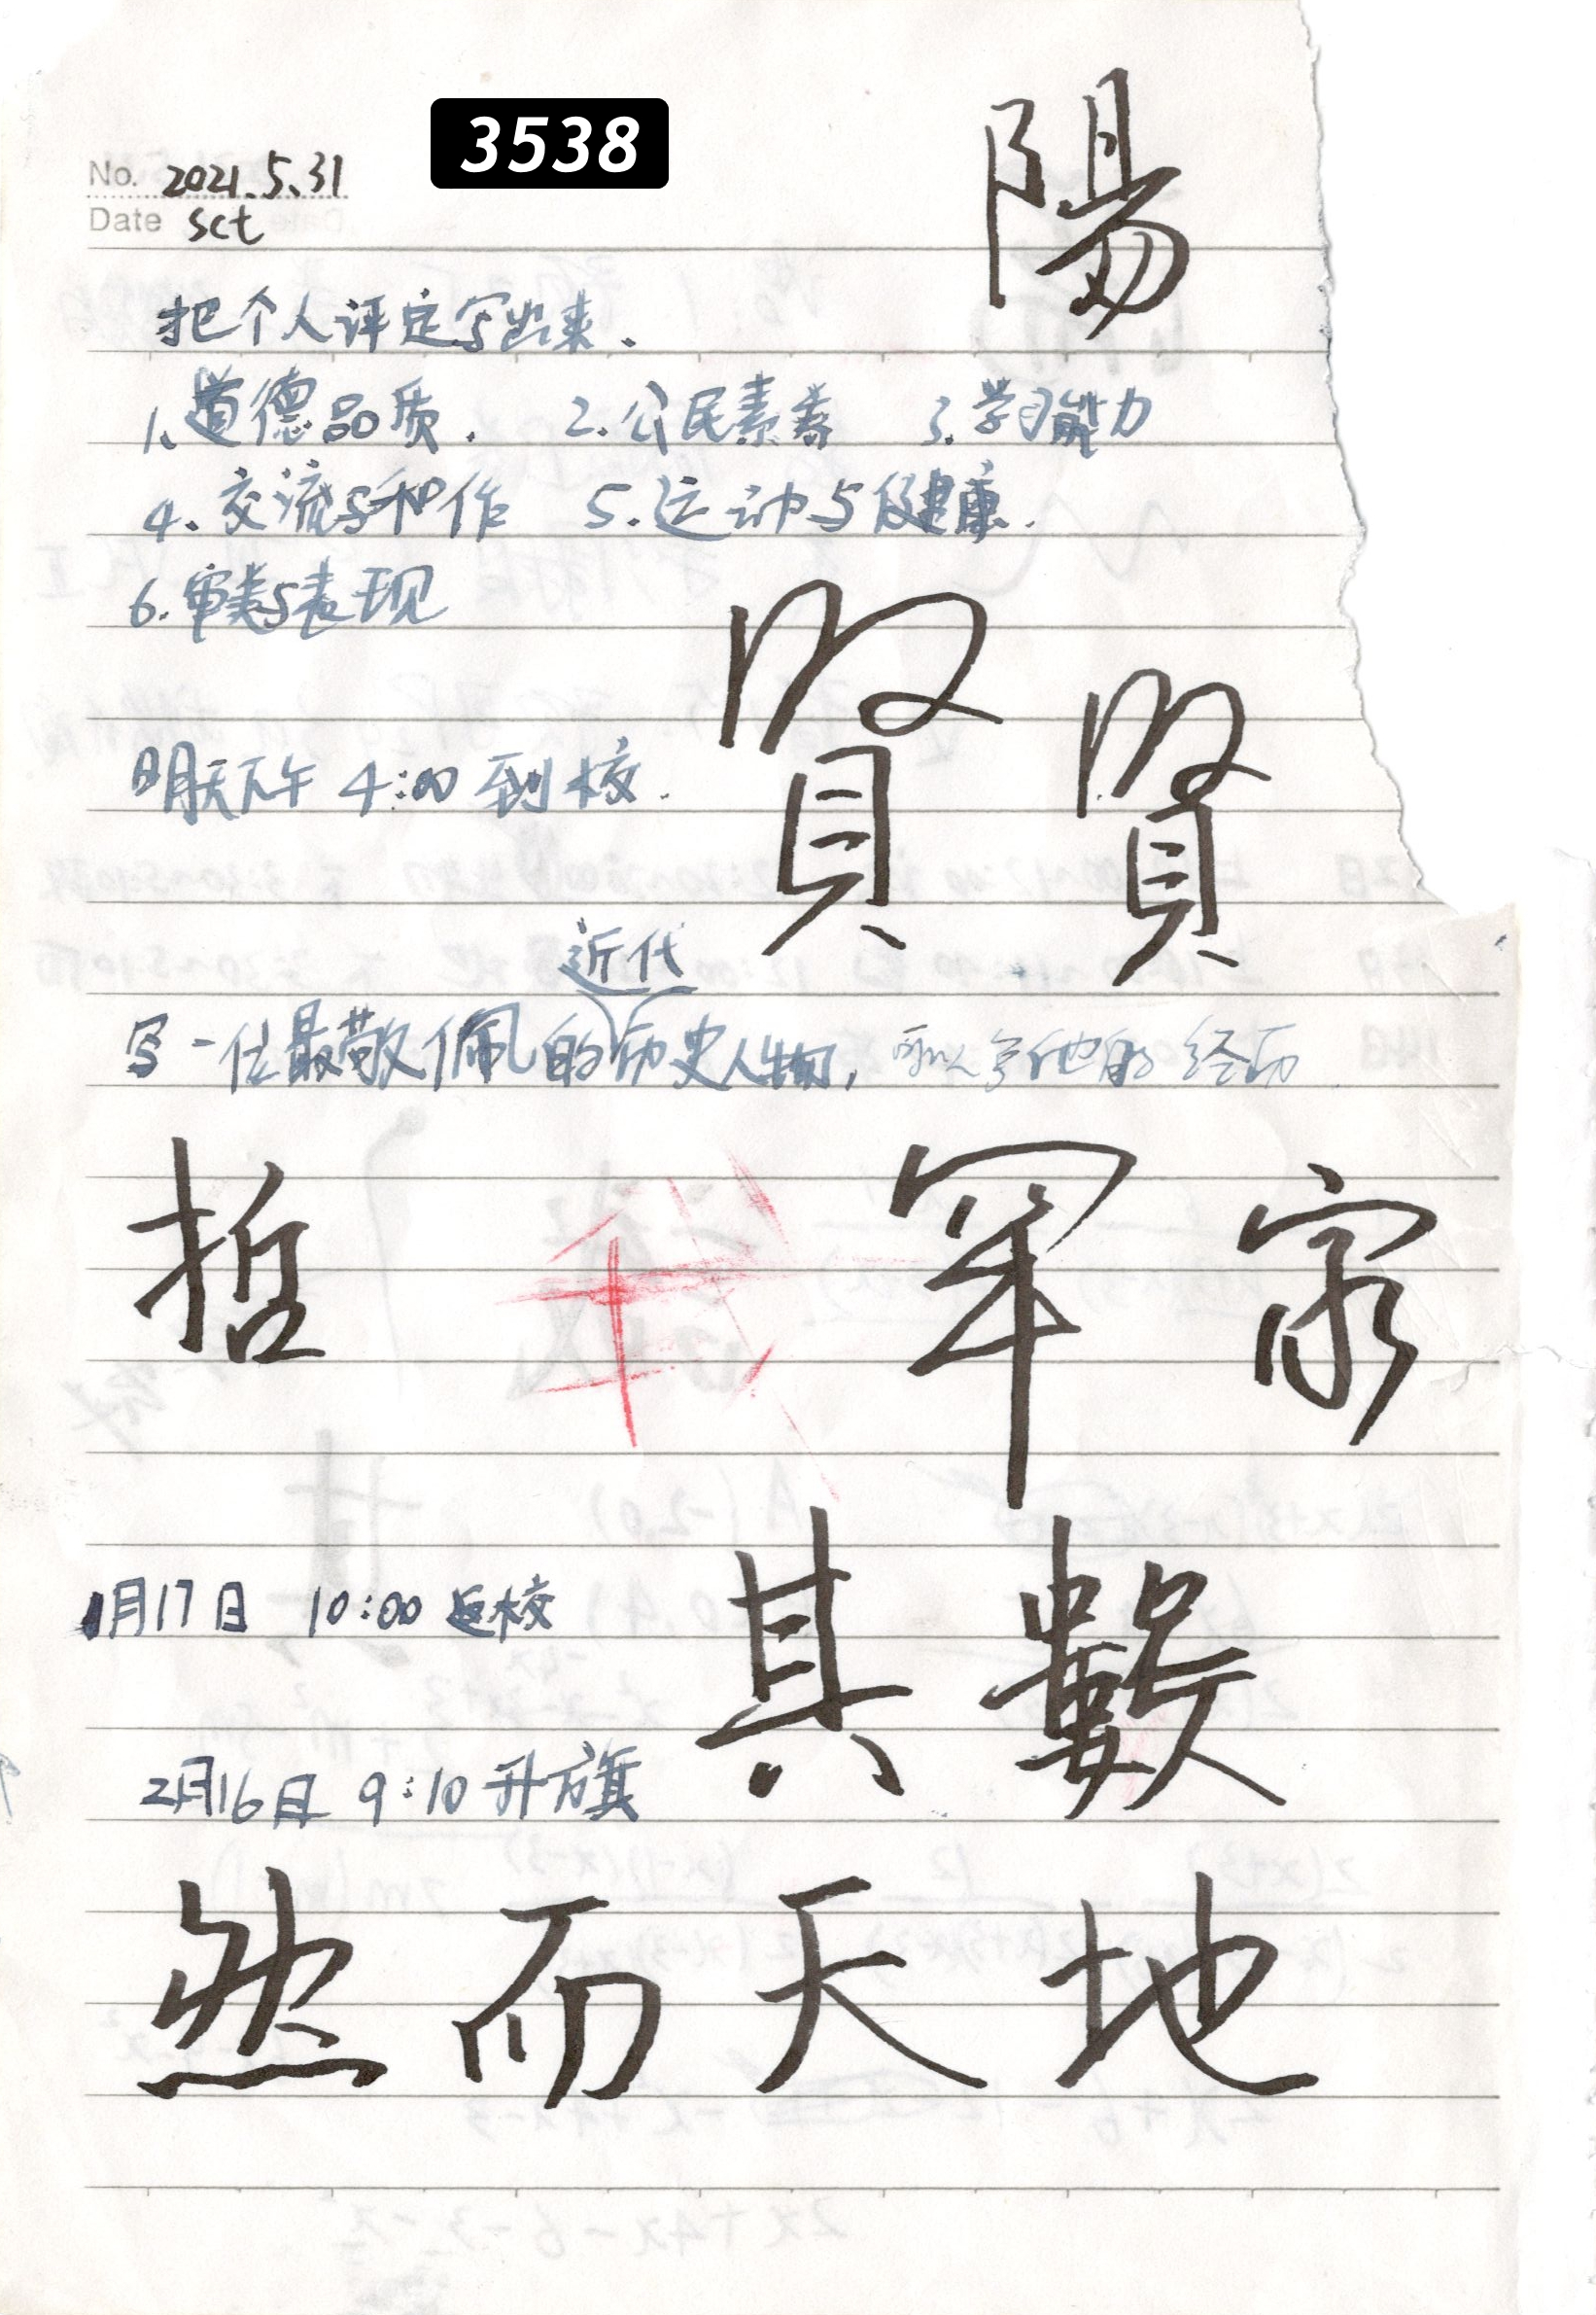 3538
陽
No. 2021.5.31
Date sct
把个人评定写出来.
1.道德品质. 2.公民素养 3.学习能力
4.交流与和作 5.运动与健康.
6.审美与表现
賢 賢
明天下午 4:00 到校.
近代
写一位最敬佩的历史人物, 可以写他的经历
哲 罕 家
1月17日 10:00 返校
其 數
2月16日 9:10 升旗
然而天地